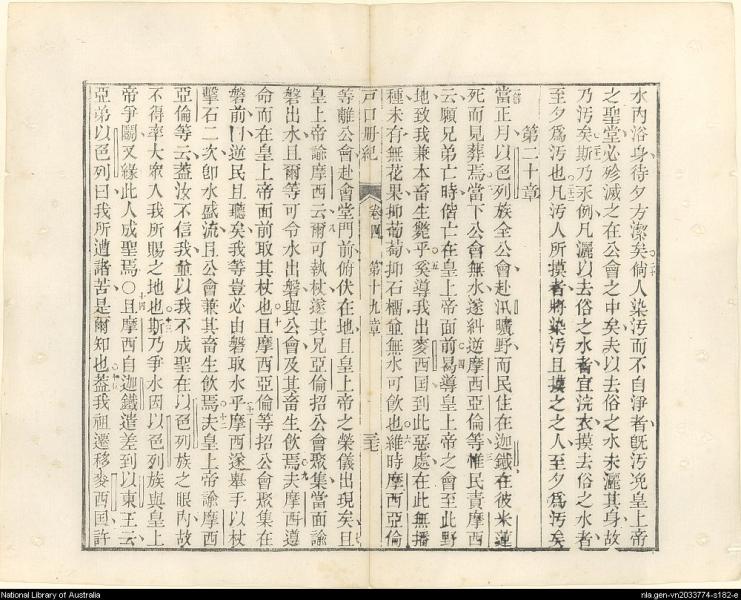 水內浴身待夕方潔矣倘人染汚而不自淨者旣汚凂皇上帝
之聖堂必殄滅之在公會之中矣夫以去俗之水未灑其身故
乃汚矣斯乃永例凡灑以去俗之水者宜浣衣摸去俗之水者
至夕爲汚也凡汚人所摸者將染汚且摸之之人至夕爲汚矣
第二十章
當正月以色列族全公會赴汛曠野而民住在迦鐵在彼米蓮
死而見葬焉當下公會無水遂糾逆摩西亞倫等惟民責摩西
云願兄弟亡時偕亡在皇上帝面前曷導皇上帝之會至此野
地致我兼本畜生斃乎奚導我出麥西囯到此惡處在此無播
種未有無花果抑葡萄抑石橊並無水可飲也維時摩西亞倫
戸口册紀 卷四 第十九章 三七
等離公會赴會堂門前俯伏在地且皇上帝之榮儀出現矣且
皇上帝諭摩西云爾可執杖遂其兄亞倫招公會聚集當面諭
磐出水且爾等可令水出磐與公會及其畜生飲焉夫摩西遵
命而在皇上帝面前取其杖也且摩西亞倫等招公會聚集在
磐前曰逆民且聽矣我等豈必由磐取水乎摩西遂舉手以杖
擊石二次卽水盛流且公會兼其畜生飲焉夫皇上帝諭摩西
亞倫等云蓋汝不信我並以我不成聖在以色列族之眼內故
不得率大衆入我所賜之地也斯乃爭水因以色列族與皇上
帝爭鬭又緣此人成聖焉〇且摩西自迦鐵遣差到以東王云
亞弟以色列曰我所遭諸苦是爾知也蓋我祖遷移麥西囯許
National Library of Australia
nla.gen-vn2033774-s182-e